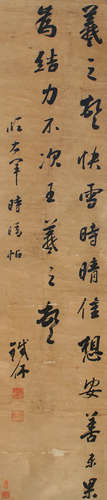 羲之頓快雪時晴佳想安善未果
為結力不次王羲之頓
臨右軍時晴帖
鐵保